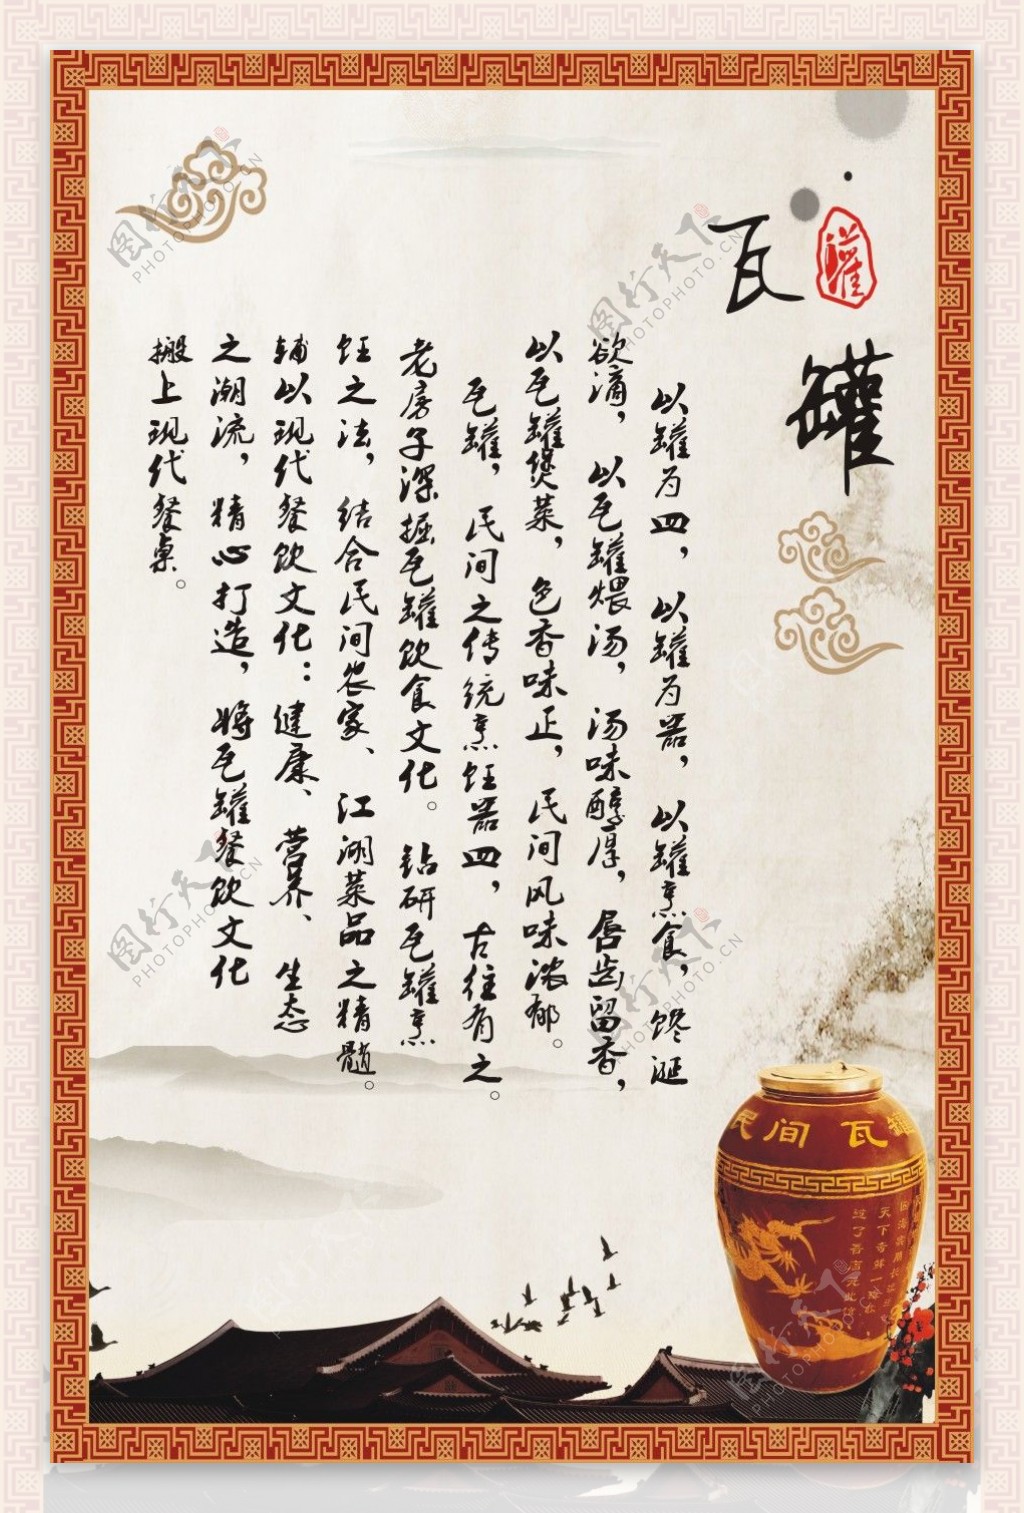 瓦罐
罐
以罐为皿，以罐为器，以罐烹食，馋涎
欲滴，以瓦罐煨汤，汤味醇厚，唇齿留香，
以瓦罐煲菜，色香味正，民间风味浓郁。
瓦罐，民间之传统烹饪器皿，古往有之。
老房子深掘瓦罐饮食文化。钻研瓦罐烹
饪之法，结合民间农家、江湖菜品之精髓。
辅以现代餐饮文化：健康、营养、生态
之潮流，精心打造，将瓦罐餐饮文化
搬上现代餐桌。
民间瓦罐
天下奇鲜一
图行天下
PHOTOPHOTO.CN
图行天下
PHOTOPHOTO.CN
图行天下
PHOTOPHOTO.CN
图行天下
PHOTOPHOTO.CN